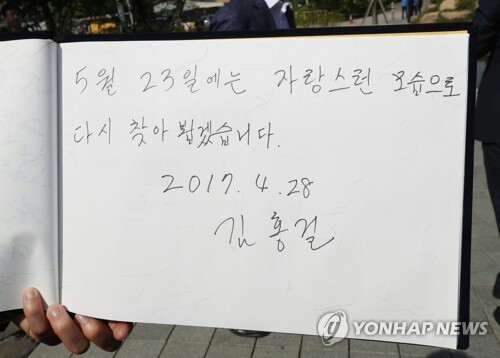 5월 23일에는 자랑스런 모습으로
다시 찾아뵙겠습니다.
2017.4.28
김홍걸
YONHAP NEWS